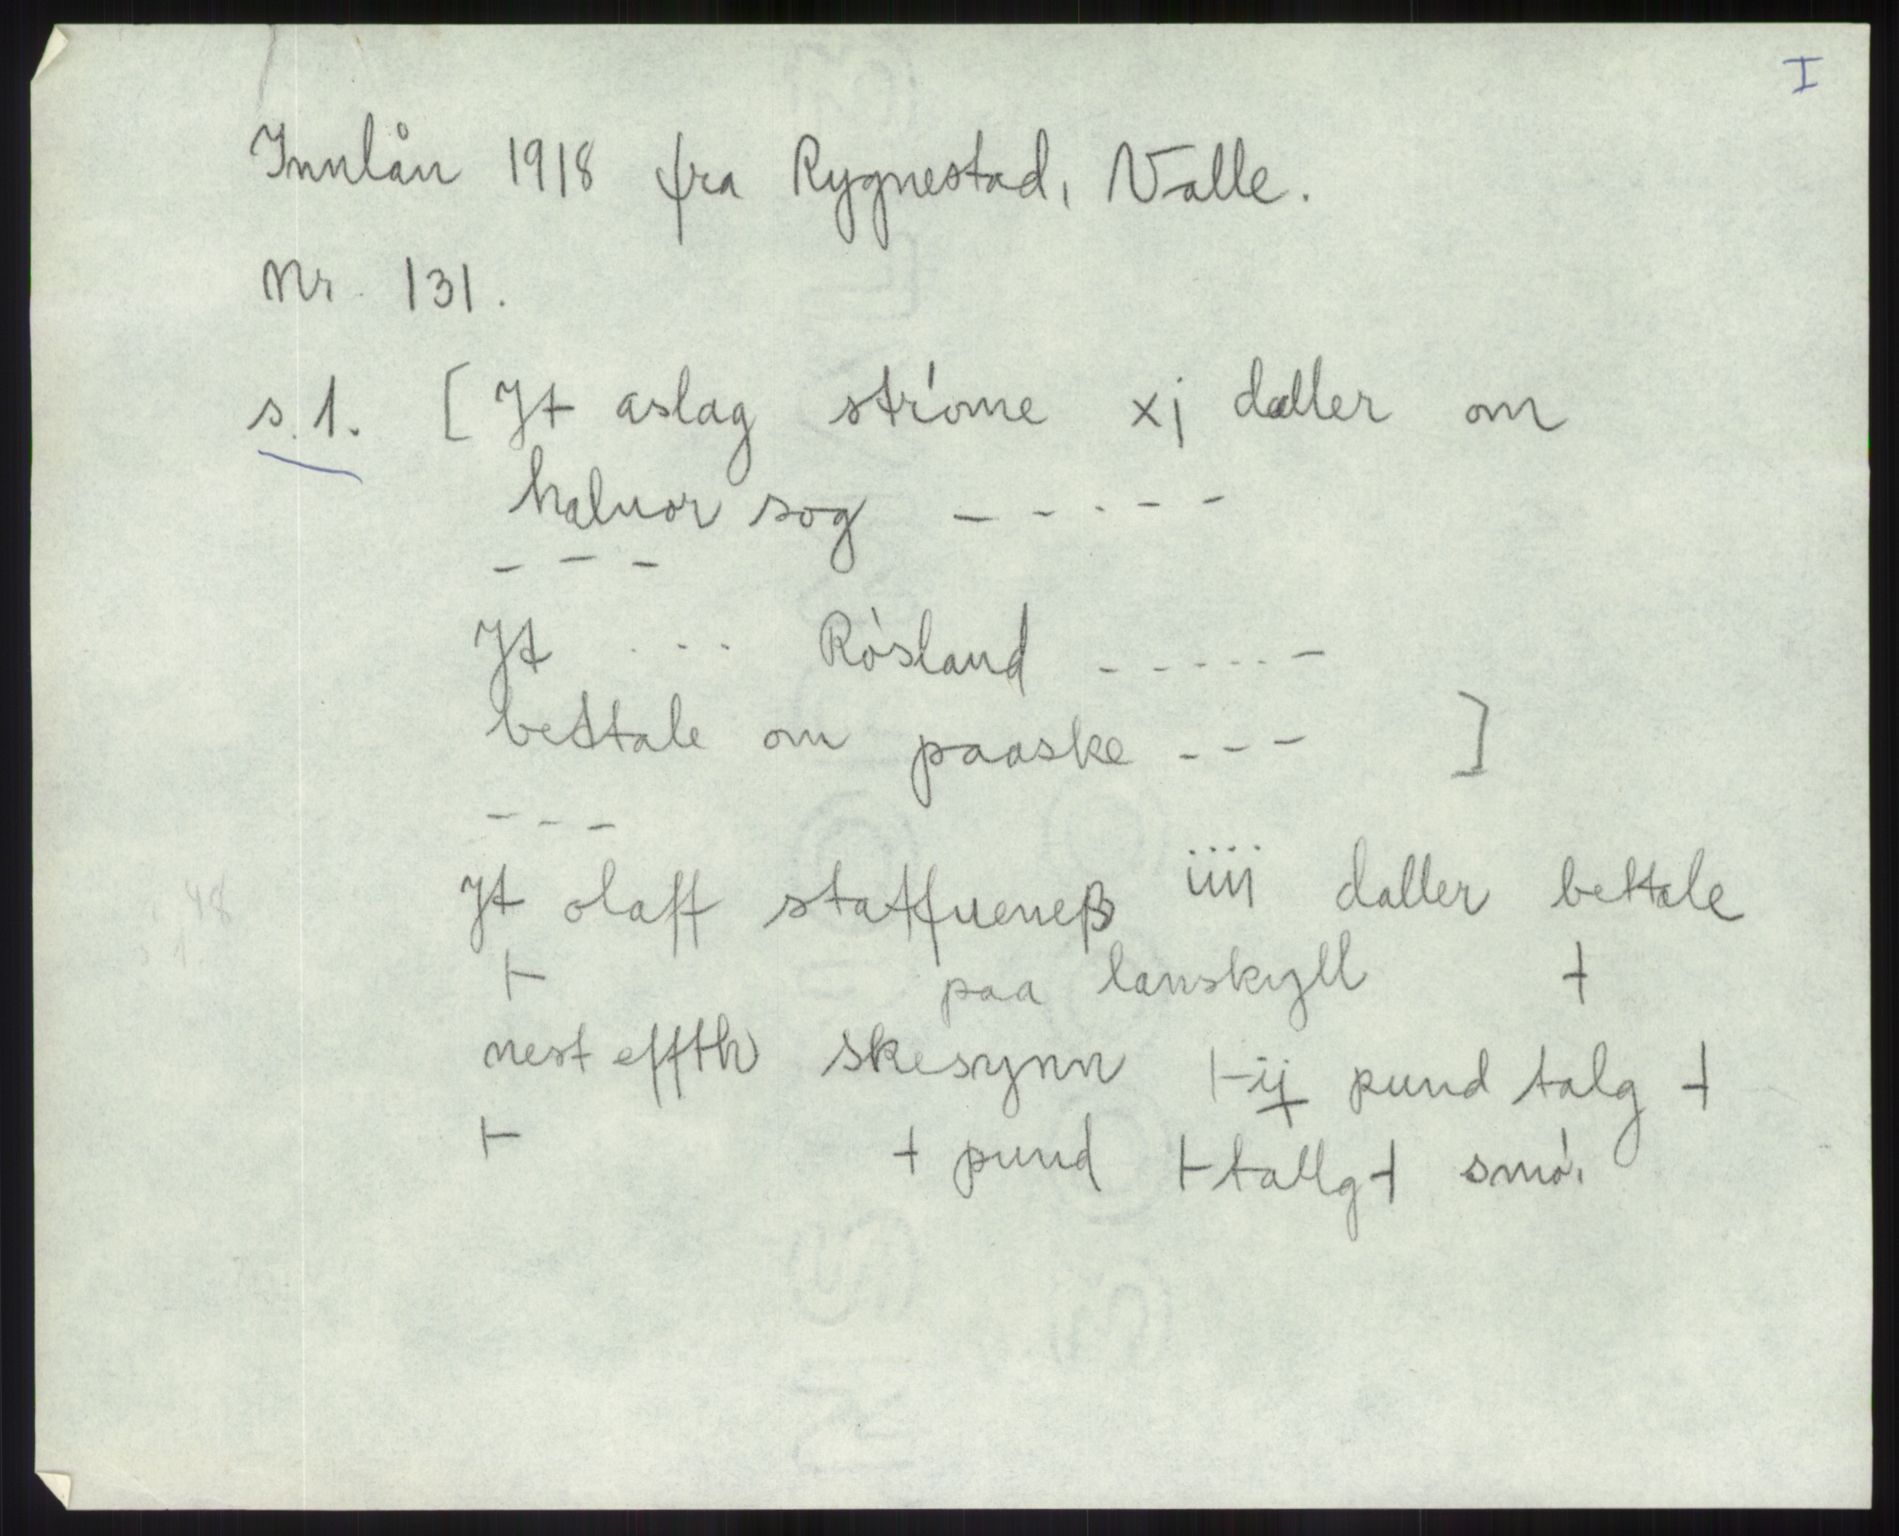 I
Innlån 1918 fra Rygnestad, Valle.
Nr. 131.
s. 1. [ Jt aslag stróme xj daller om
haluor sog - - - - -
- - -
Jt . . . Rósland - - - - - -
bettale om paaske - - - ]
- - -
Jt olaff statfueneß iiii daller bettale
⊢ paa lanskyll ⊣
nest effth skesynn ⊢ ij pund talg ⊣
⊢ ⊣ pund ⊢ tallg ⊣ smó.
48
s 1